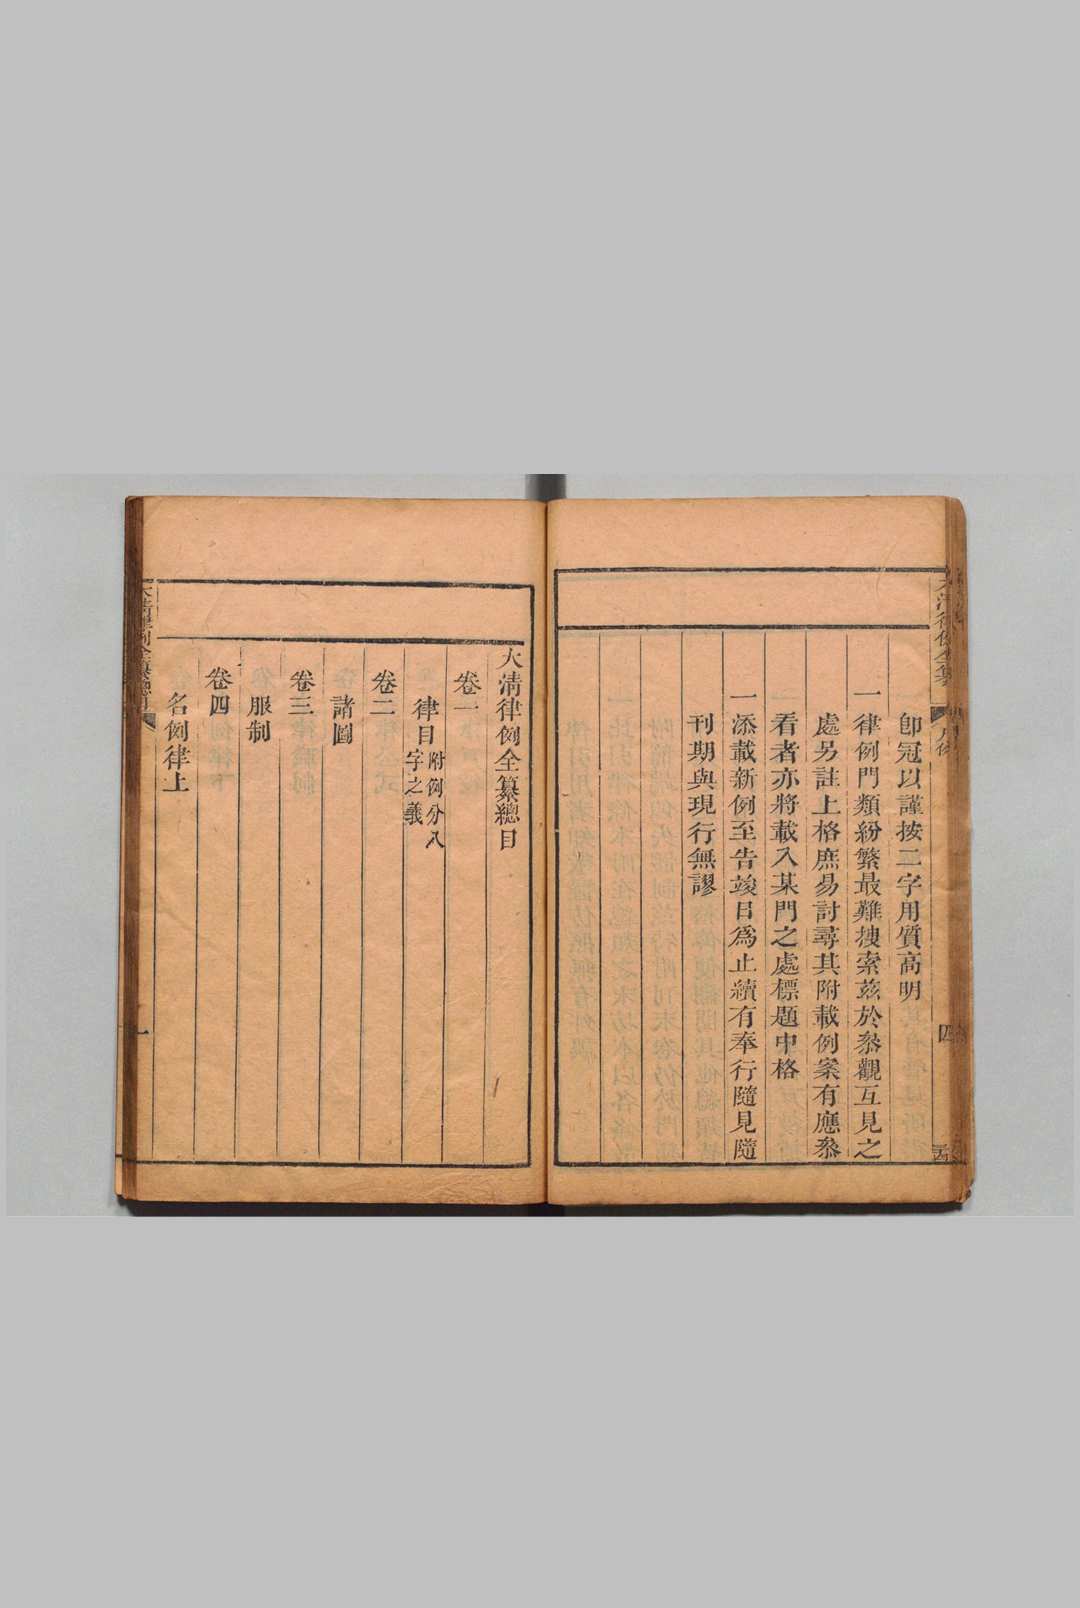 即冠以謹按二字用質高明
一律例門類紛繁最難搜索茲於叅觀互見之
處另註上格庶易討尋其附載例案有應叅
看者亦將載入某門之處標題中格
一添載新例至告竣日為止續有奉行隨見隨
刊期與現行無謬
大清律例全纂
凡例
四
大清律例全纂總目
卷一
律目附例分八
字之義
卷二
諸圖
卷三
服制
卷四
名例律上
大清律例全纂總目
一